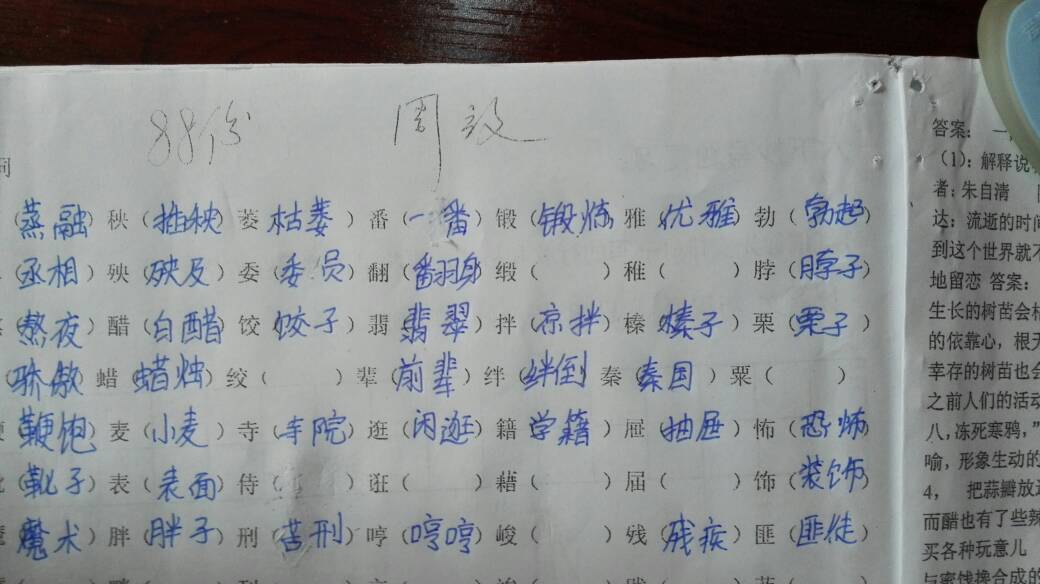 88份 周
词
(蒸融) 秧(推秧) 菱 枯萎) 番(一番) 锻(锻炼 雅 优雅) 勃(勃起)
丞相) 殃(殃及) 委(委员) 翻(翻身 缎( ) 稚( ) 脖(脖子)
(熬夜) 醋(白醋) 饺(饺子) 翡 翡翠) 拌(凉拌) 榛(榛子) 栗(栗子)
(骄傲) 蜡(蜡烛) 绞( ) 辈(前辈) 绊(绊倒 秦(秦国) 粟( )
鞭炮) 麦(小麦) 寺( 院) 逛(闲逛) 籍 学籍) 屉(抽屉) 怖(恐怖)
(靴子) 表(表面) 侍( ) 诳( ) 藉( ) 届( ) 饰(装饰
魔 魔术) 胖(胖子) 刑(苦刑) 哼(哼哼) 峻( ) 残(残疾) 匪(匪徒)
答案: 一
(1): 解释说
者: 朱自清
达: 流逝的时间
到这个世界就不
地留恋 答案:
生长的树苗会
的依靠心, 根
幸存的树苗也会
之前人们的活动
八, 冻死寒鸦, "
喻, 形象生动的
4, 把蒜瓣放
而醋也有了些辣
买各种玩意儿
与蜜饯搀合成的